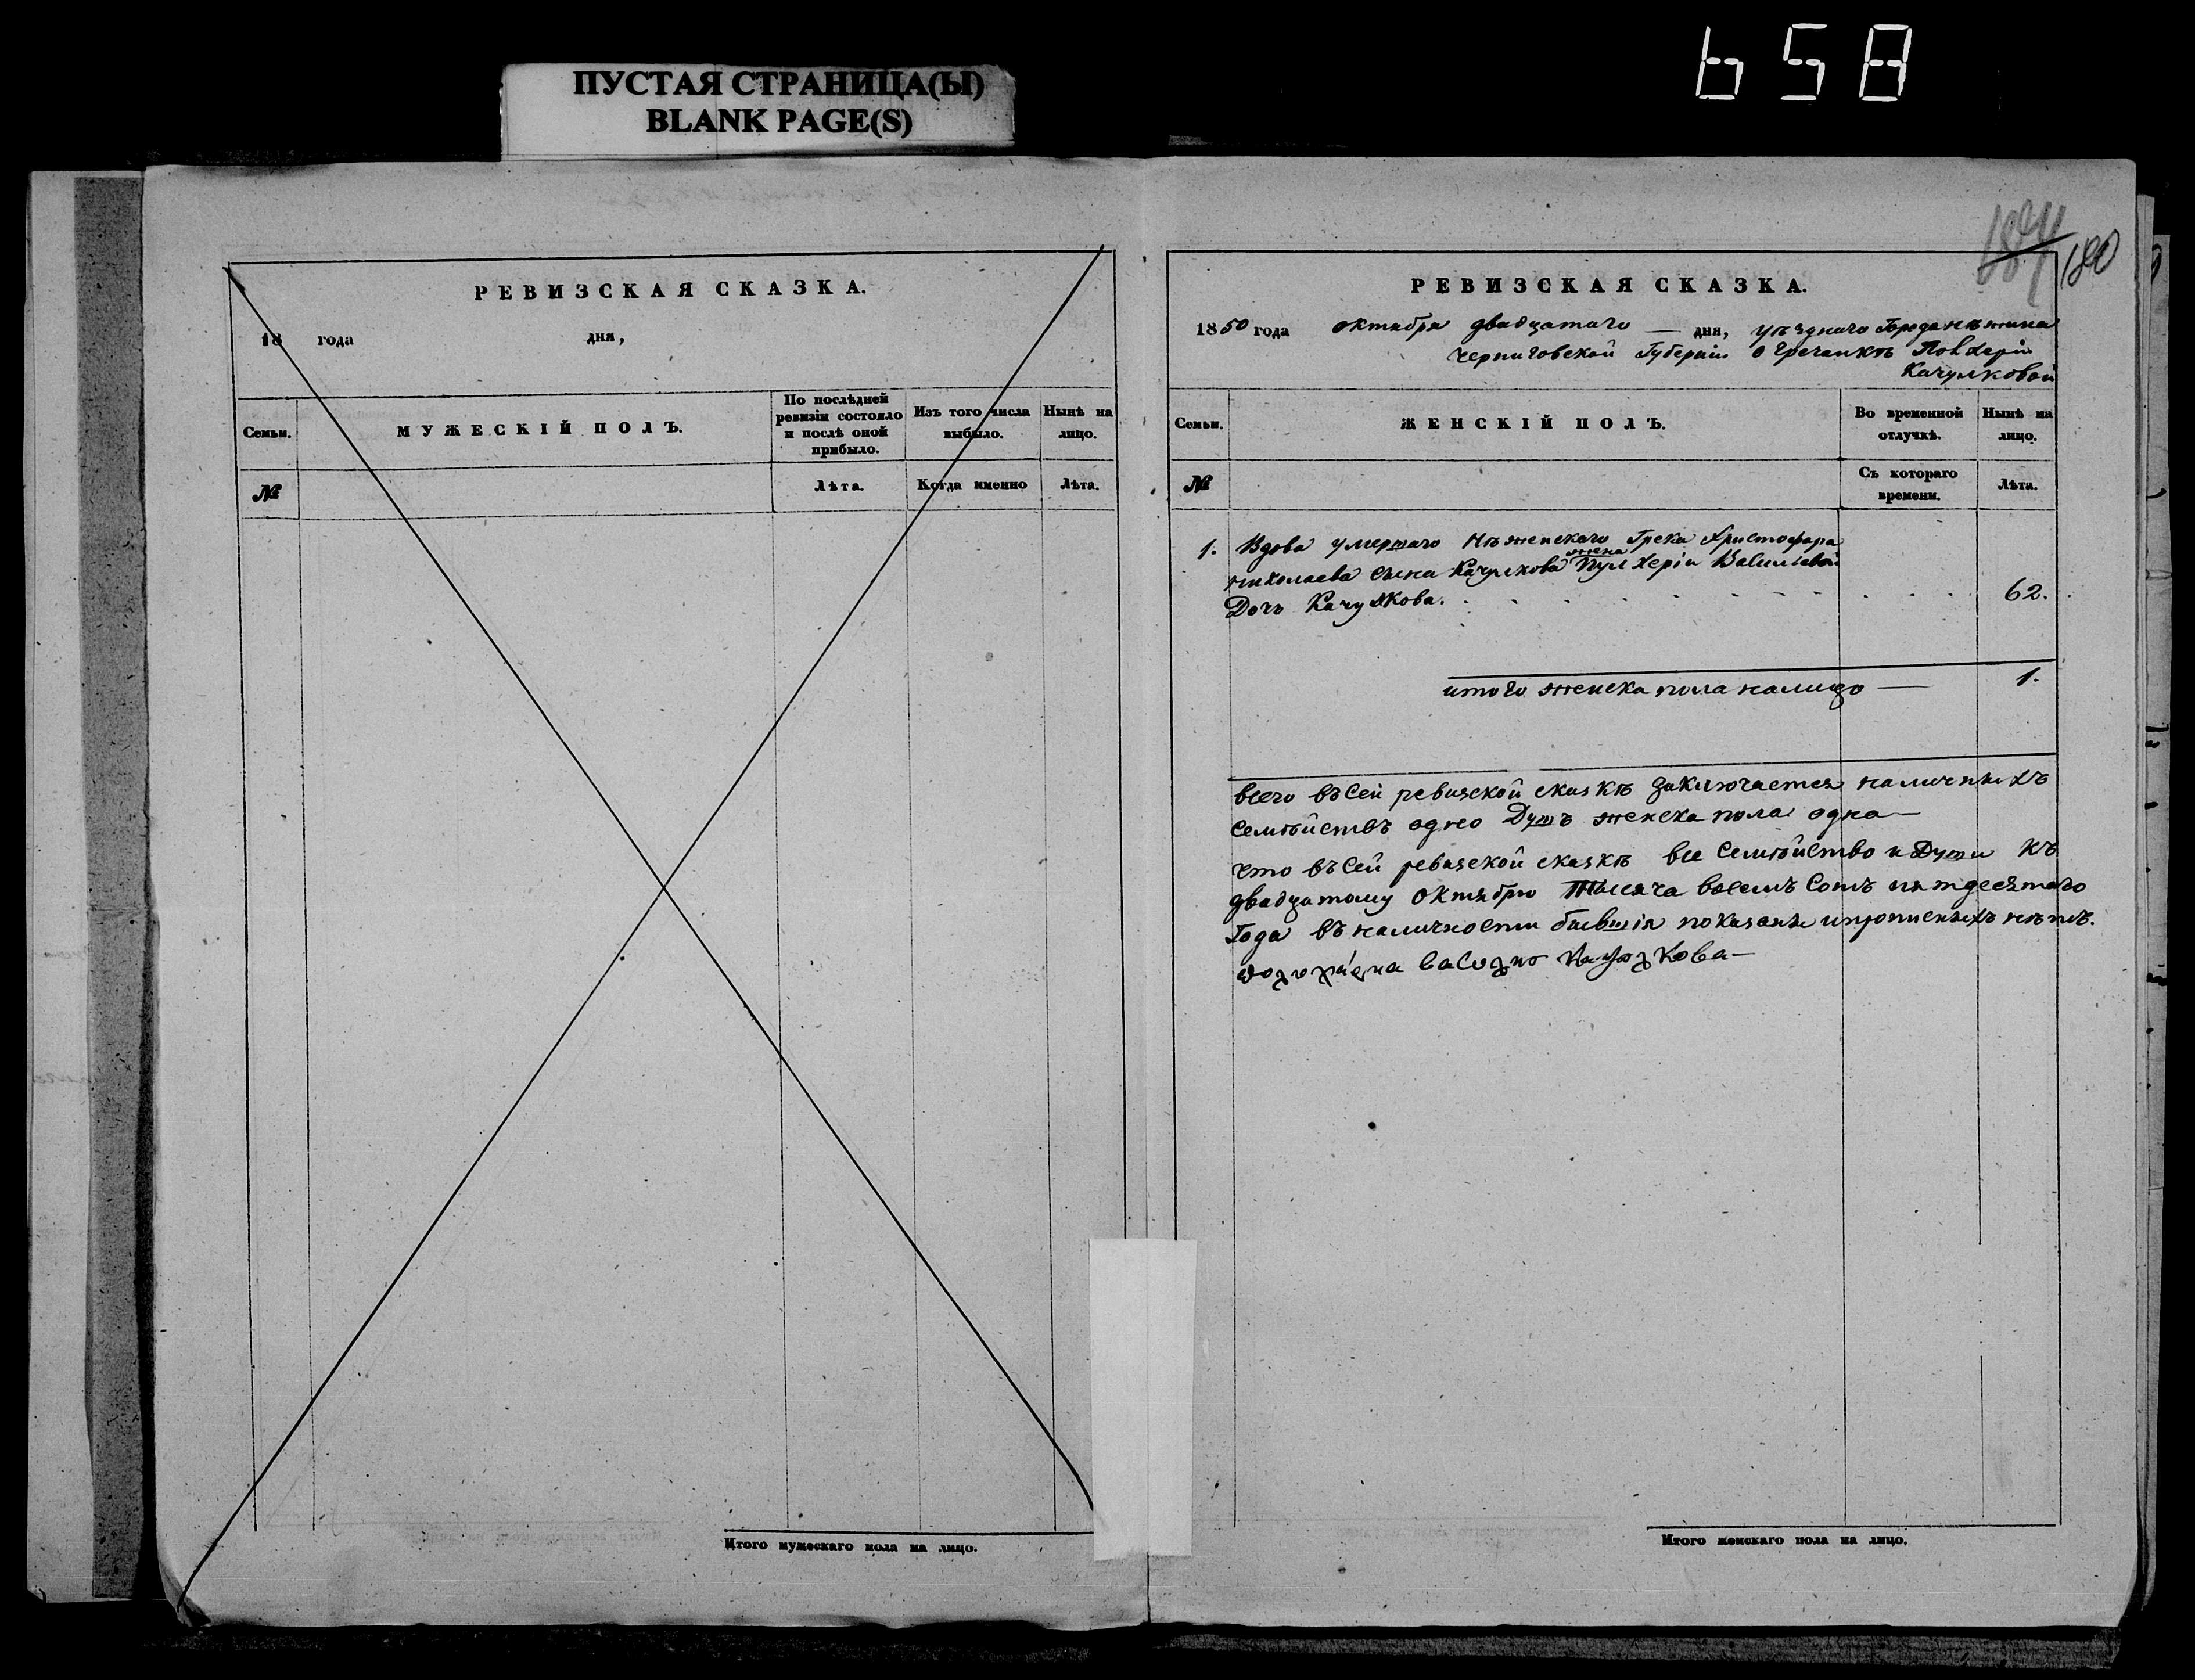 658
ПУСТАЯ СТРАНИЦА(Ы)
BLANK PAGE(S)
РЕВИЗСКАЯ СКАЗКА.
18 года дня,
Семьи.
МУЖЕСКІЙ ПОЛЪ.
По послѣдней ревизіи состояло и послѣ оной прибыло.
Изъ того числа выбыло.
Нынѣ на лицо.
№
Лѣта.
Когда именно
Лѣта.
Итого мужескаго пола на лицо.
180
РЕВИЗСКАЯ СКАЗКА.
1850 года октября двадцатаго — дня, уѣзднаго Города нѣжина
черниговской Губерніи о гречанкѣ Полхеріи
Качулковой
Семьи.
ЖЕНСКІЙ ПОЛЪ.
Во временной отлучкѣ.
Нынѣ на лицо.
№
Съ котораго времени.
Лѣта.
1. Вдова умершаго Нѣженскаго Грека Христофара
жена
николаева сына Качулкова Пулхерія Васильевой
Дочь Качулкова. 62.
итого женска пола налицо — 1.
всего въ сей ревизской сказкѣ заключается наличныхъ
Семѣйствъ одно Душъ женска пола одна —
что въ сей ревизской сказкѣ все Семѣйство и Души къ
двадцатому октябрю Тысяча восемъ Сотъ пятдесятаго
Года въ наличности бывшія показаны и прописныхъ нѣтъ.
Итого женскаго пола на лицо.